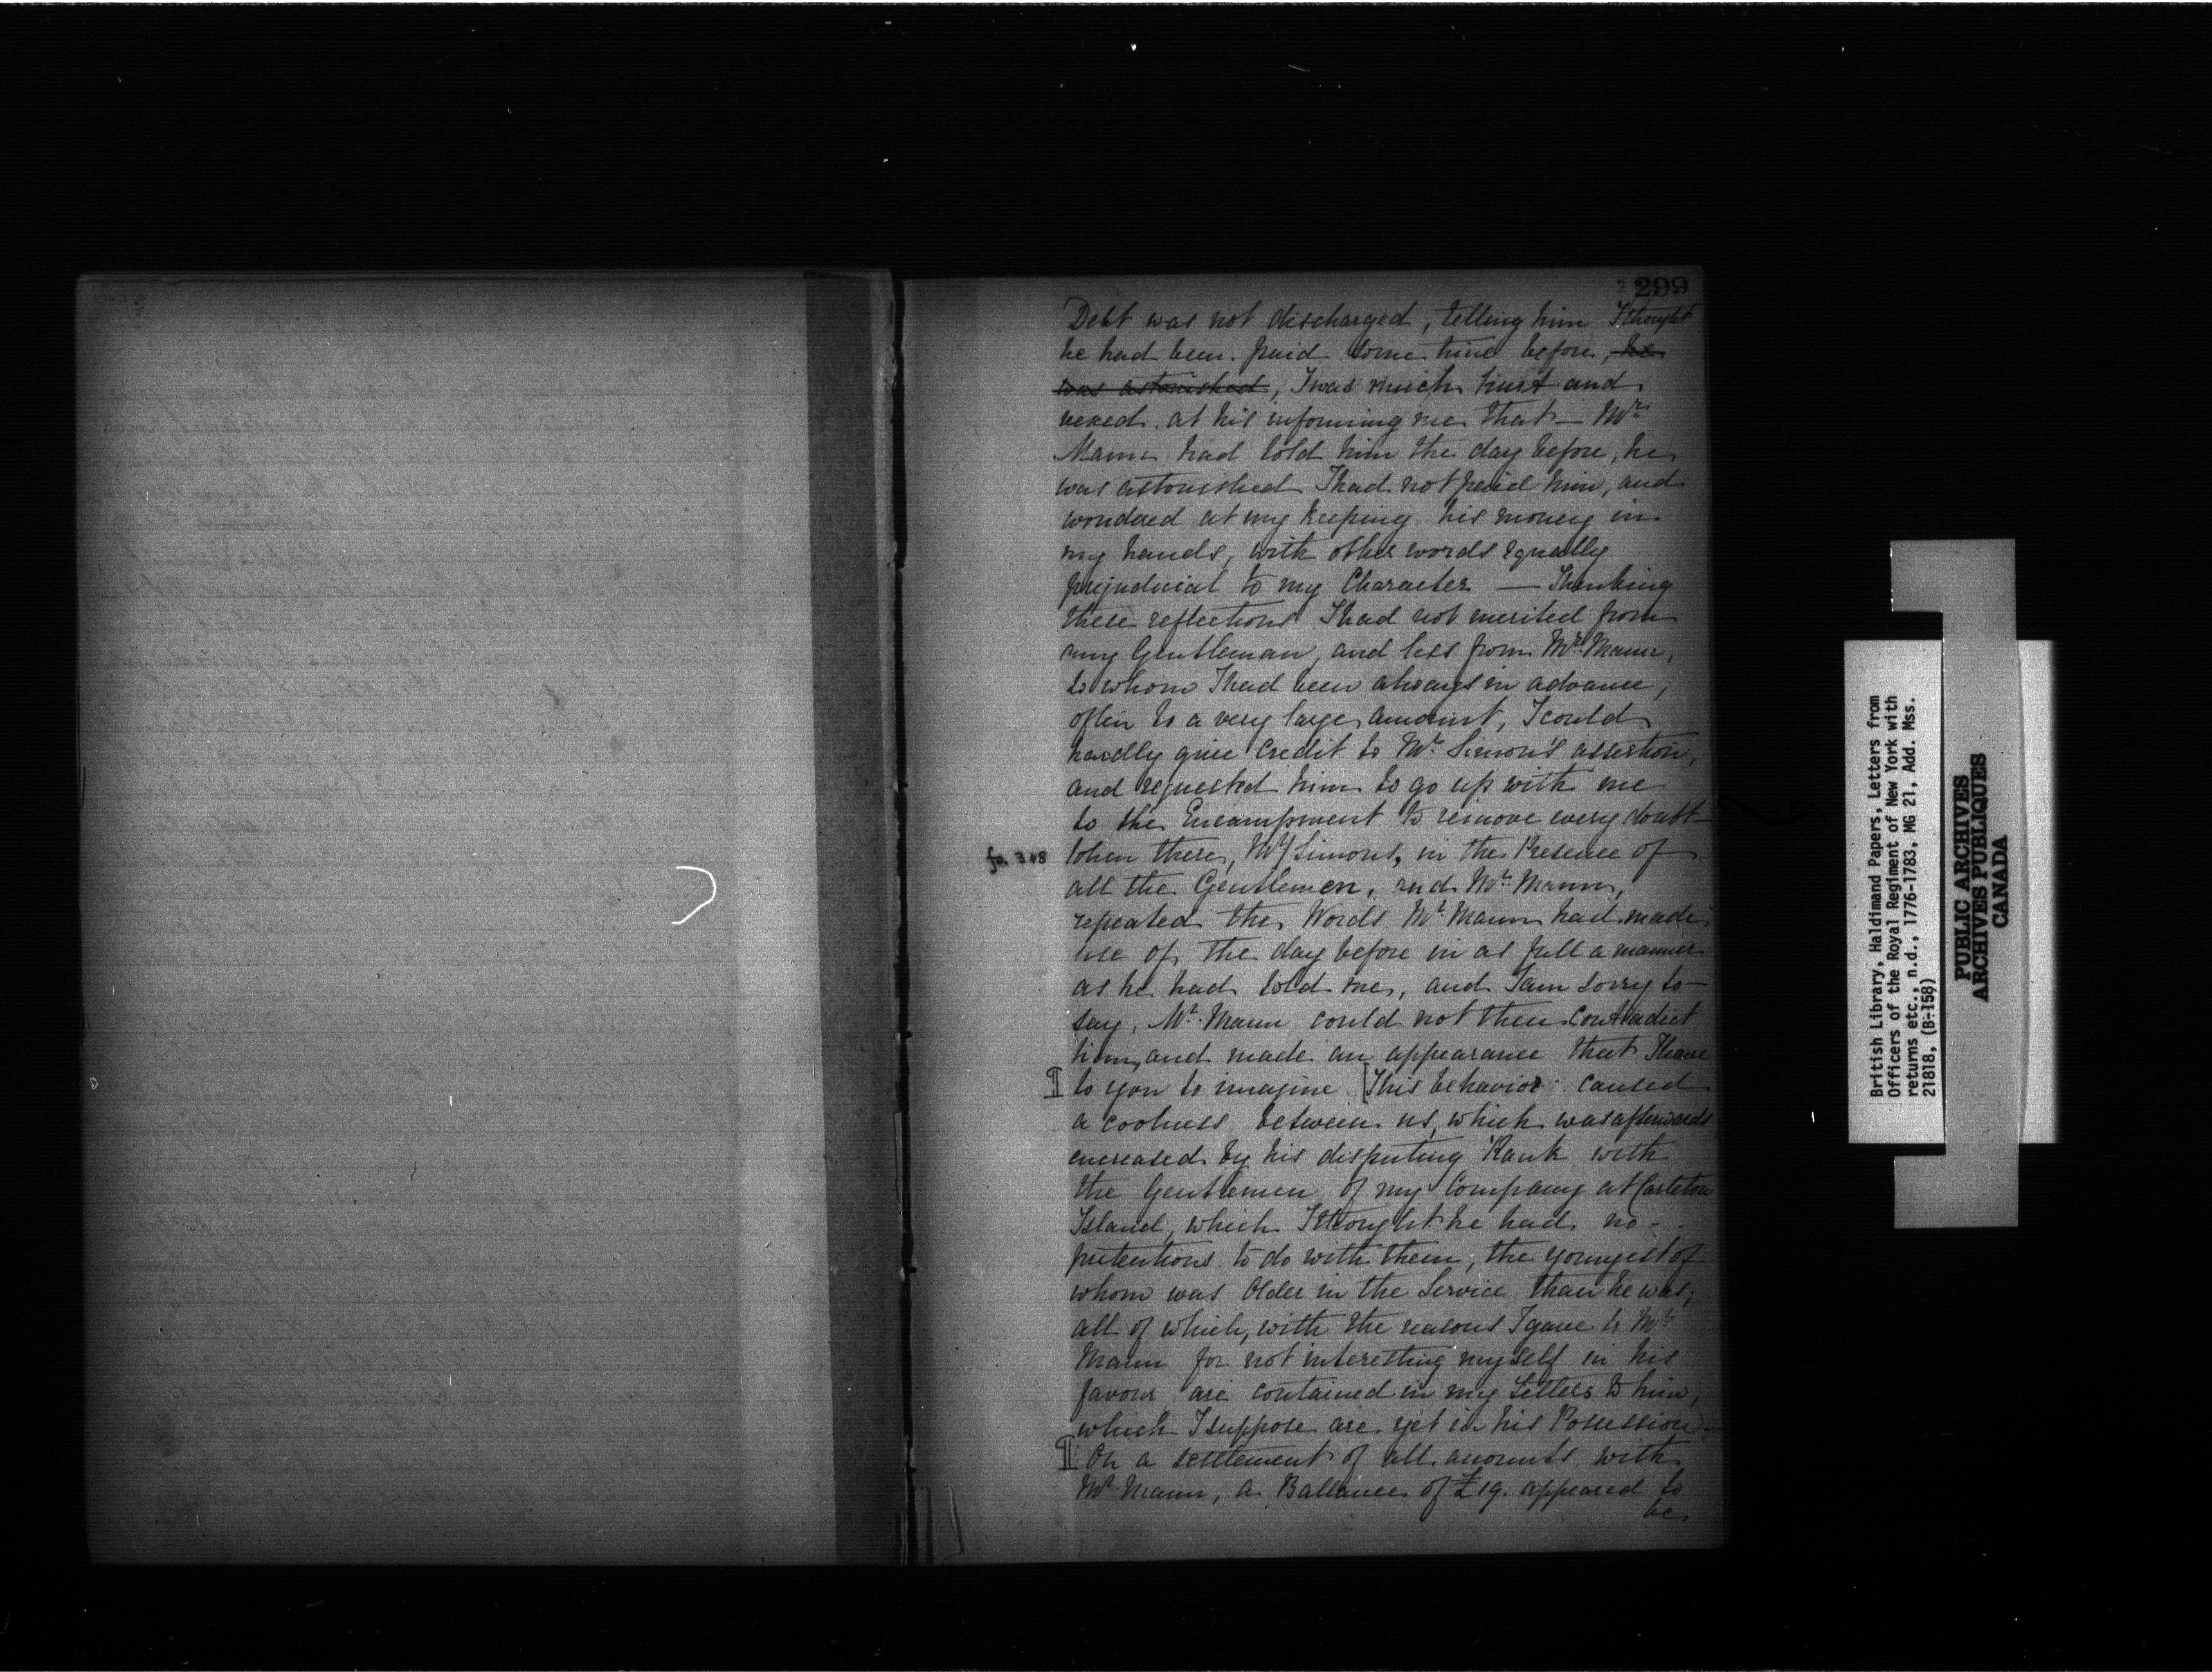 2 299
Debt was not discharged, telling him I thought
he had been paid some time before, he
was astonished, I was much hurt and
vexed at his informing me that — Mr.
Mann had told him the day before, he
was astonished I had not paid him, and
wondered at my keeping his money in
my hands, with other words equally
prejudicial to my Character — Thinking
these reflections I had not merited from
any Gentleman, and less from Mr. Mann,
to whom I had been always in advance,
often to a very large amount, I could
hardly give Credit to Mr. Simon's assertion,
and requested him to go up with me
to the Encampment to remove every doubt —
fo. 348
When there, Mr. Simons, in the Presence of
all the Gentlemen, and Mr. Mann,
repeated the Words Mr. Mann had made
use of, the day before in as full a manner
as he had told me, and I am sorry to —
say, Mr. Mann could not then Contradict
him, and made an appearance that I leave
¶ to you to imagine. [This behavior caused
a coolness between us, which was afterwards
encreased by his disputing Rank with
the Gentlemen of my Company at Carleton
Island, which I thought he had no —
pretentions to do with them, the youngest of
whom was Older in the Service than he was;
all of which, with the reasons I gave to Mr.
Mann for not interesting myself in his
favour are contained in my Letters to him,
which I suppose are yet in his Possession —
¶ On a settlement of all accounts with
Mr. Mann, a Ballance of £19. appeared to
be
British Library, Haldimand Papers, Letters from
Officers of the Royal Regiment of New York with
returns etc., n.d., 1776-1783, MG 21, Add. Mss.
21818, (B-158)
PUBLIC ARCHIVES
ARCHIVES PUBLIQUES
CANADA